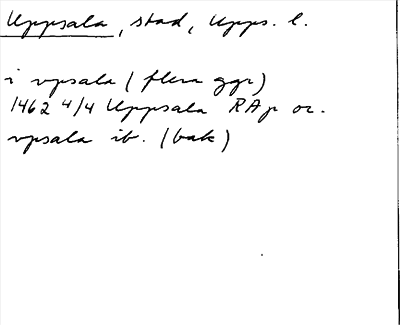 Uppsala, stad, Upps. l.
i vpsala (flera ggr)
1462 4/4 Uppsala RAp or.
vpsala ib. (bak)